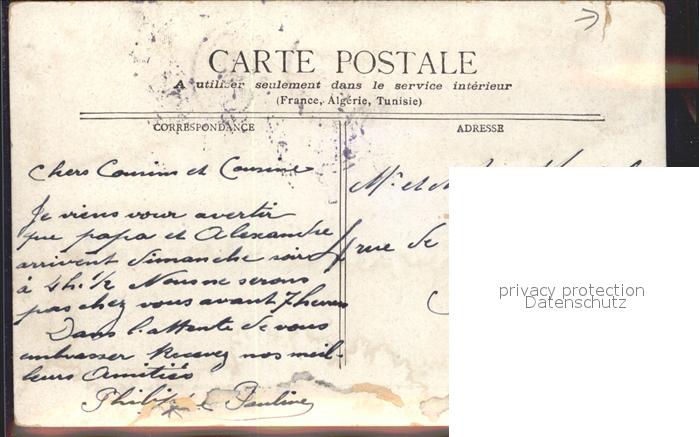 CARTE POSTALE
A utiliser seulement dans le service intérieur
(France, Algérie, Tunisie)
CORRESPONDANCE
ADRESSE
Chers Cousins et Cousine
Je viens vour avertir
que papa et Alexandre
arrivent dimanche soir
à 4h.½ Nous ne serons
pas chez vous avant 7 heures
Dans l'attente de vous
embrasser Recevez nos meil-
leurs Amitiés
Philippe Pauline
Mr. et
rue de
privacy protection
Datenschutz